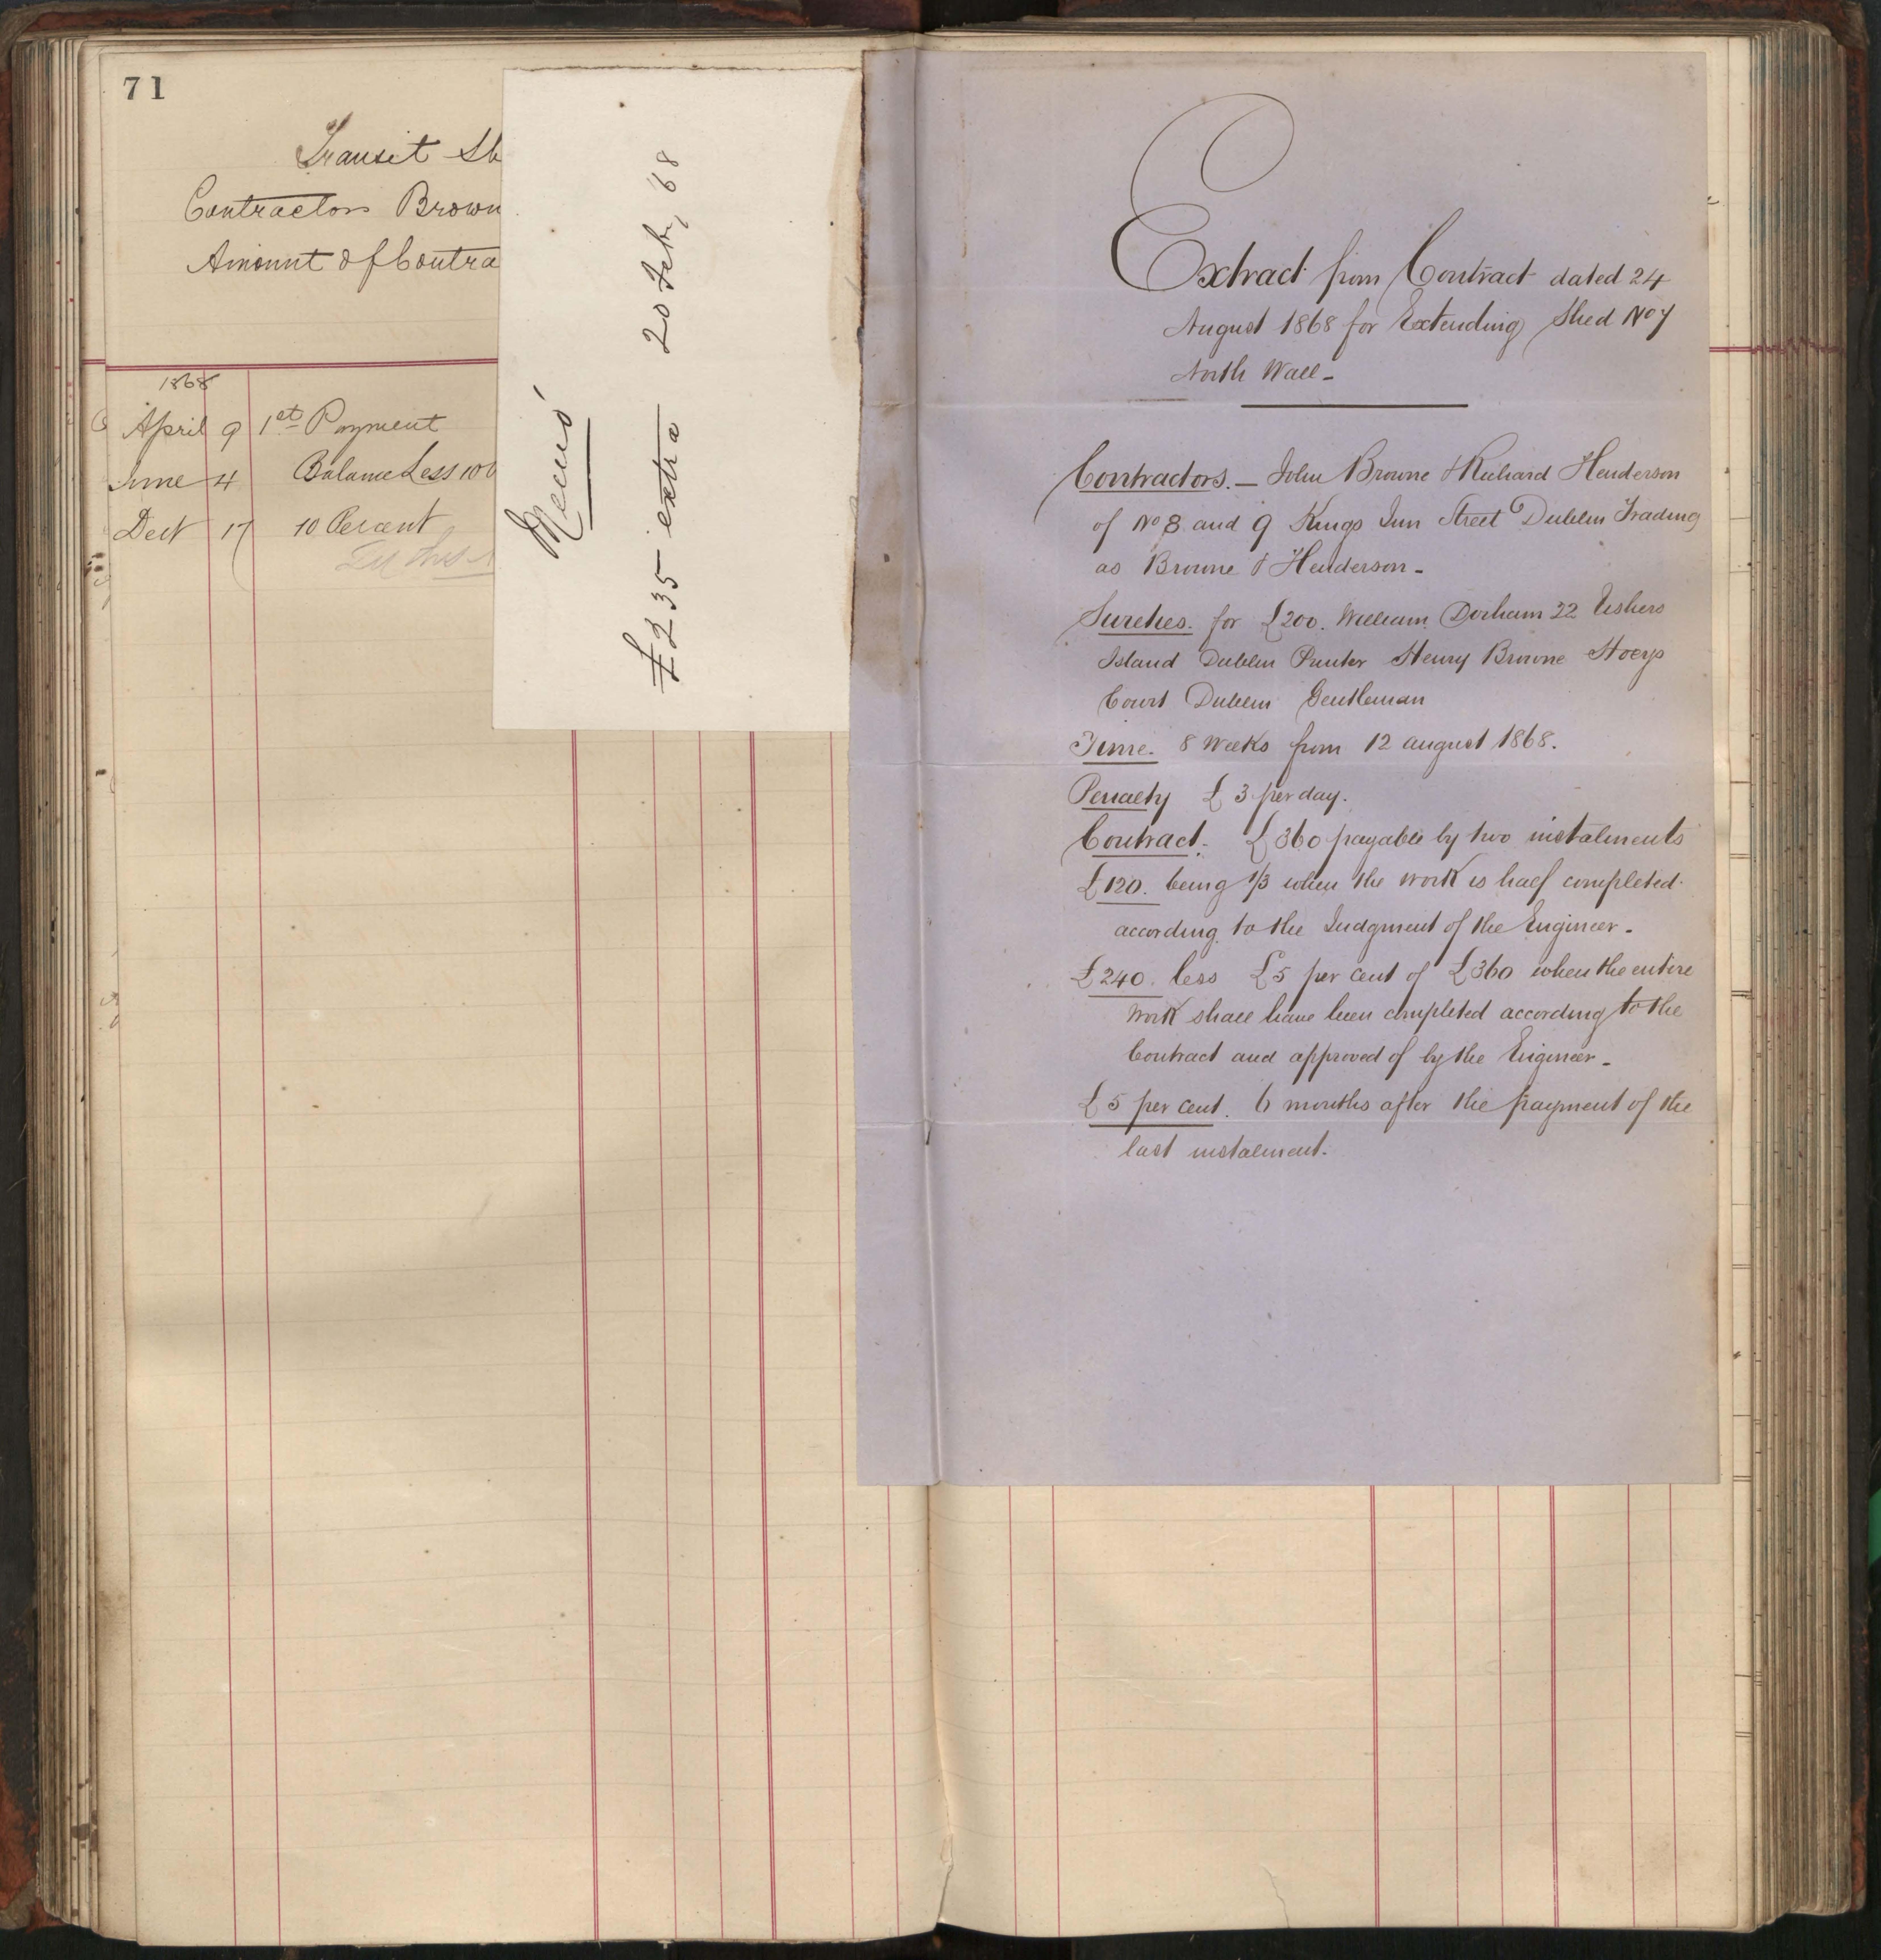 71
Transit Sh
Contractors Brown
Amount of Contra
1868
April 9 1st Payment
June 4 Balance Less 10
Dect 17 10 Percent
Memo
£235 extra 20 Feb, '68
Extract from Contract dated 24
August 1868 for Extending Shed No 7
North Wall -
Contractors. - John Browne & Richard Henderson
of No 8 and 9 Kings Inn Street Dublin Trading
as Browne & Henderson -
Sureties. for £200. William Dorham 22 Ushers
Island Dublin Printer Henry Browne Hoeys
Court Dublin Gentleman
Time. 8 Weeks from 12 august 1868.
Penalty £3 per day.
Contract. £360 payable by two instalments
£120. being 1/3 when the work is half completed.
according to the Judgment of the Engineer -
£240. less £5 per cent of £360 when the entire
work shall have been completed according to the
Contract and approved of by the Engineer -
£5 per cent. 6 months after the payment of the
last instalment.